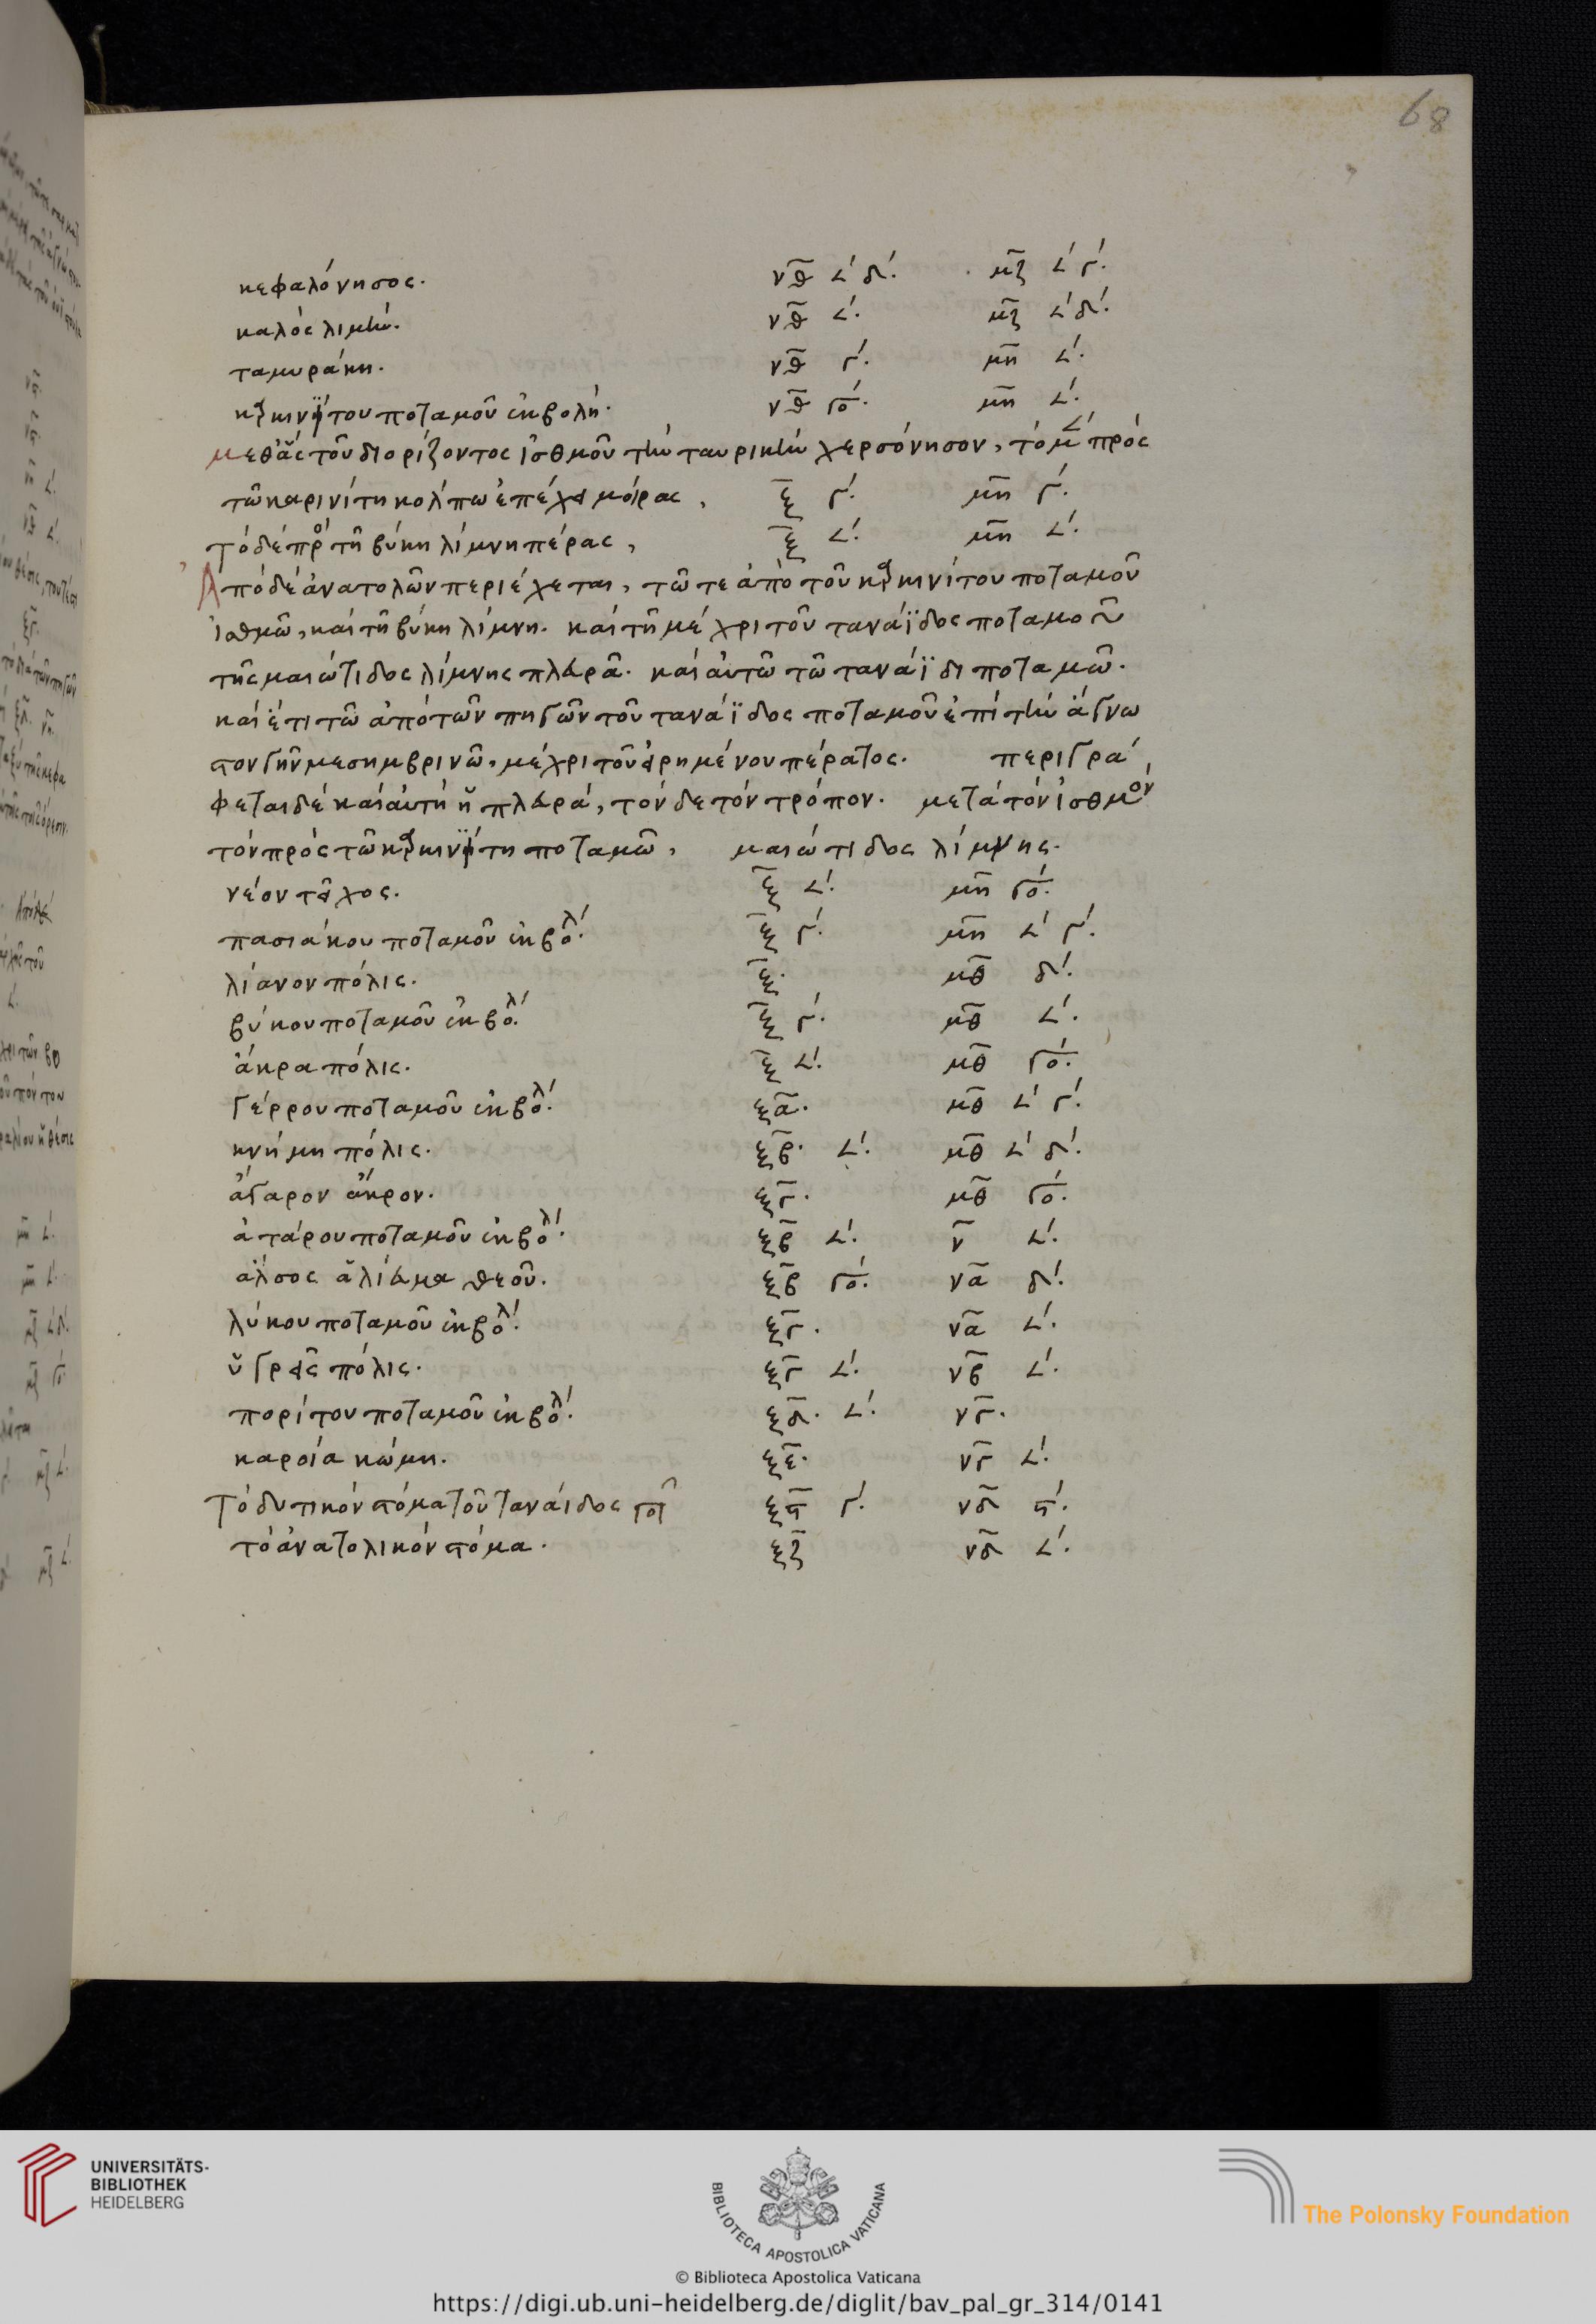 68
κεφαλόνησος. νθ ∠΄ δ΄. μζ ∠΄ γ΄.
καλὸς λιμήν. νθ ∠΄. μζ ∠΄ δ΄.
ταμυράκη. νθ γ΄. μη ∠΄.
ποταμοῦ ἐκβολή. νθ γο΄. μη ∠΄.
μεθ' ἃς τοῦ διορίζοντος ἰσθμοῦ τὴν ταυρικὴν χερσόνησον, τὸ μὲν πρὸς
τῶ καρινίτη κόλπω ἐπέχει μοίρας, ξ γ΄. μη γ΄.
τὸ δὲ πρὸς τῆ βύκη λίμνη πέρας, ξ ∠΄. μη ∠΄.
Ἀπὸ δὲ ἀνατολῶν περιέχεται, τῶ τε ἀπὸ τοῦ καρκινίτου ποταμοῦ
ἰσθμῶ, καὶ τῆ βύκη λίμνη. καὶ τῆ μέχρι τοῦ τανάϊδος ποταμοῦ
τῆς μαιώτιδος λίμνης πλευρᾶ. καὶ αὐτῶ τῶ τανάϊδι ποταμῶ.
καὶ ἔτι τῶ ἀπὸ τῶν πηγῶν τοῦ τανάϊδος ποταμοῦ ἐπὶ τὴν ἄγνω
στον γῆν μεσημβρινῶ, μέχρι τοῦ εἰρημένου πέρατος. περιγρά
φεται δὲ καὶ αὐτὴ ἡ πλευρά, τόνδε τὸν τρόπον. μετὰ τὸν ἰσθμὸν
τὸν πρὸς τῶ ποταμῶ, μαιώτιδος λίμνης.
νέον τεῖχος. ξ ∠΄. μη γο΄.
πασιάκου ποταμοῦ ἐκβολ΄. ξ γ΄. μη ∠΄ γ΄.
λίανον πόλις. ξ. μθ δ΄.
βύκου ποταμοῦ ἐκβολ΄. ξ γ΄. μθ ∠΄.
ἄκρα πόλις. ξ ∠΄. μθ γο΄.
γέρρου ποταμοῦ ἐκβολ΄. ξα. μθ ∠΄ γ΄.
κνήμη πόλις. ξβ. ∠΄. μθ ∠΄ δ΄.
ἄγαρον ἄκρον. ξγ. μθ γο΄.
ἀγάρου ποταμοῦ ἐκβολ΄. ξβ ∠΄. ν ∠΄.
ἄλσος ἁλίευμα θεοῦ. ξβ γο΄. να δ΄.
λύκου ποταμοῦ ἐκβολ΄. ξγ. να ∠΄.
ὑγρεῖς πόλις. ξγ ∠΄. νβ ∠΄.
πορίτου ποταμοῦ ἐκβολ΄. ξδ. ∠΄. νγ.
καροία κώμη. ξε. νγ ∠΄.
τὸ δυτικὸν στόμα τοῦ τανάιδος ξϛ γ΄. νδ ϛ΄.
τὸ ἀνατολικὸν στόμα. ξζ νδ ∠΄.
UNIVERSITÄTS-
BIBLIOTHEK
HEIDELBERG
BIBLIOTECA APOSTOLICA VATICANA
The Polonsky Foundation
© Biblioteca Apostolica Vaticana
https://digi.ub.uni-heidelberg.de/diglit/bav_pal_gr_314/0141